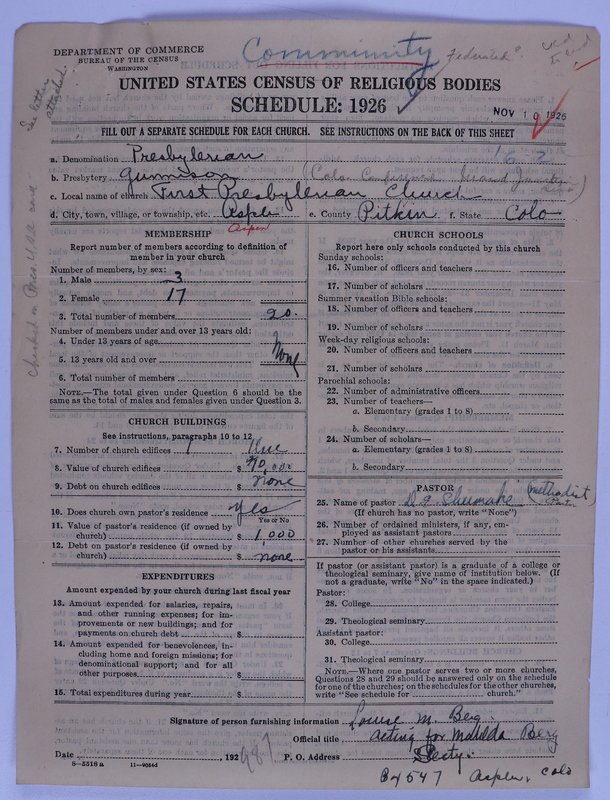 DEPARTMENT OF COMMERCE
BUREAU OF THE CENSUS
WASHINGTON
Community
Federated?
UNITED STATES CENSUS OF RELIGIOUS BODIES
SCHEDULE: 1926
NOV 10 1926
FILL OUT A SEPARATE SCHEDULE FOR EACH CHURCH. SEE INSTRUCTIONS ON THE BACK OF THIS SHEET
a. Denomination Presbyterian
b. Presbytery Gunnison
c. Local name of church First Presbyterian Church
d. City, town, village, or township, etc. Aspen e. County Pitkin f. State Colo
Aspen
MEMBERSHIP
Report number of members according to definition of member in your church
Number of members, by sex:
1. Male 3
2. Female 17
3. Total number of members 20.
Number of members under and over 13 years old:
4. Under 13 years of age None
5. 13 years old and over
6. Total number of members
NOTE.—The total given under Question 6 should be the
same as the total of males and females given under Question 3.
CHURCH BUILDINGS
See instructions, paragraphs 10 to 12
7. Number of church edifices 1
8. Value of church edifices $
9. Debt on church edifices $ none
10. Does church own pastor's residence yes
Yes or No
11. Value of pastor's residence (if owned by
church) $ 1,000
12. Debt on pastor's residence (if owned by
church) $ none
EXPENDITURES
Amount expended by your church during last fiscal year
13. Amount expended for salaries, repairs,
and other running expenses; for im-
provements or new buildings; and for
payments on church debt $
14. Amount expended for benevolences, in-
cluding home and foreign missions; for
denominational support; and for all
other purposes $
15. Total expenditures during year $
CHURCH SCHOOLS
Report here only schools conducted by this church
Sunday schools:
16. Number of officers and teachers
17. Number of scholars
Summer vacation Bible schools:
18. Number of officers and teachers
19. Number of scholars
Week-day religious schools:
20. Number of officers and teachers
21. Number of scholars
Parochial schools:
22. Number of administrative officers
23. Number of teachers—
a. Elementary (grades 1 to 8)
b. Secondary
24. Number of scholars—
a. Elementary (grades 1 to 8)
b. Secondary
PASTOR
25. Name of pastor (Methodist
(If church has no pastor, write "None")
26. Number of ordained ministers, if any, em-
ployed as assistant pastors
27. Number of other churches served by the
pastor or his assistants
If pastor (or assistant pastor) is a graduate of a college or
theological seminary, give name of institution below. (If
not a graduate, write "No" in the space indicated.)
Pastor:
28. College
29. Theological seminary
Assistant pastor:
30. College
31. Theological seminary
NOTE.—Where one pastor serves two or more churches,
Questions 28 and 29 should be answered only on the schedule
for one of the churches; on the schedules for the other churches,
write "See schedule for church."
Signature of person furnishing information Louise M. Berg.
Official title acting for Matilda Berg
Date , 192 P. O. Address Secty.
8-5518a 11-9056d
Bx 547 Aspen, Colo